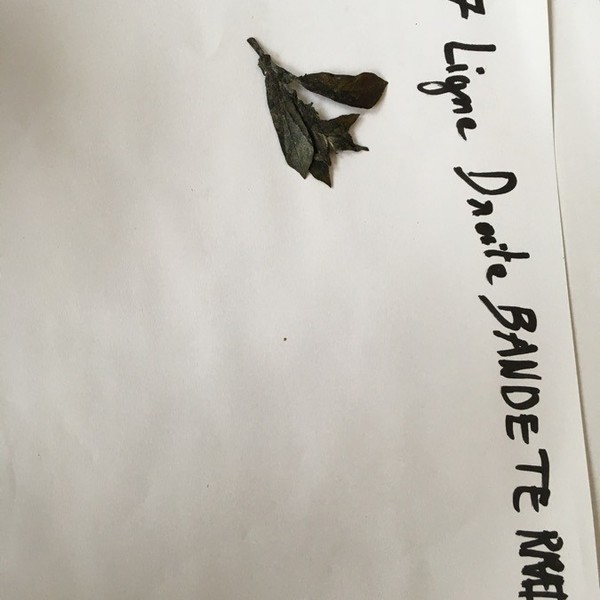 7 Ligne Droite BANDE TE